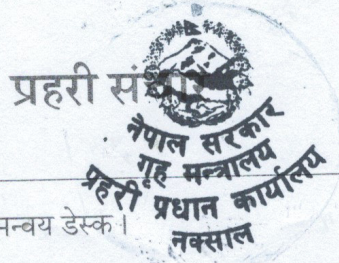 प्रहरी संचार
नेपाल सरकार
गृह मन्त्रालय
प्रहरी प्रधान कार्यालय
नक्साल
मन्वय डेस्क।